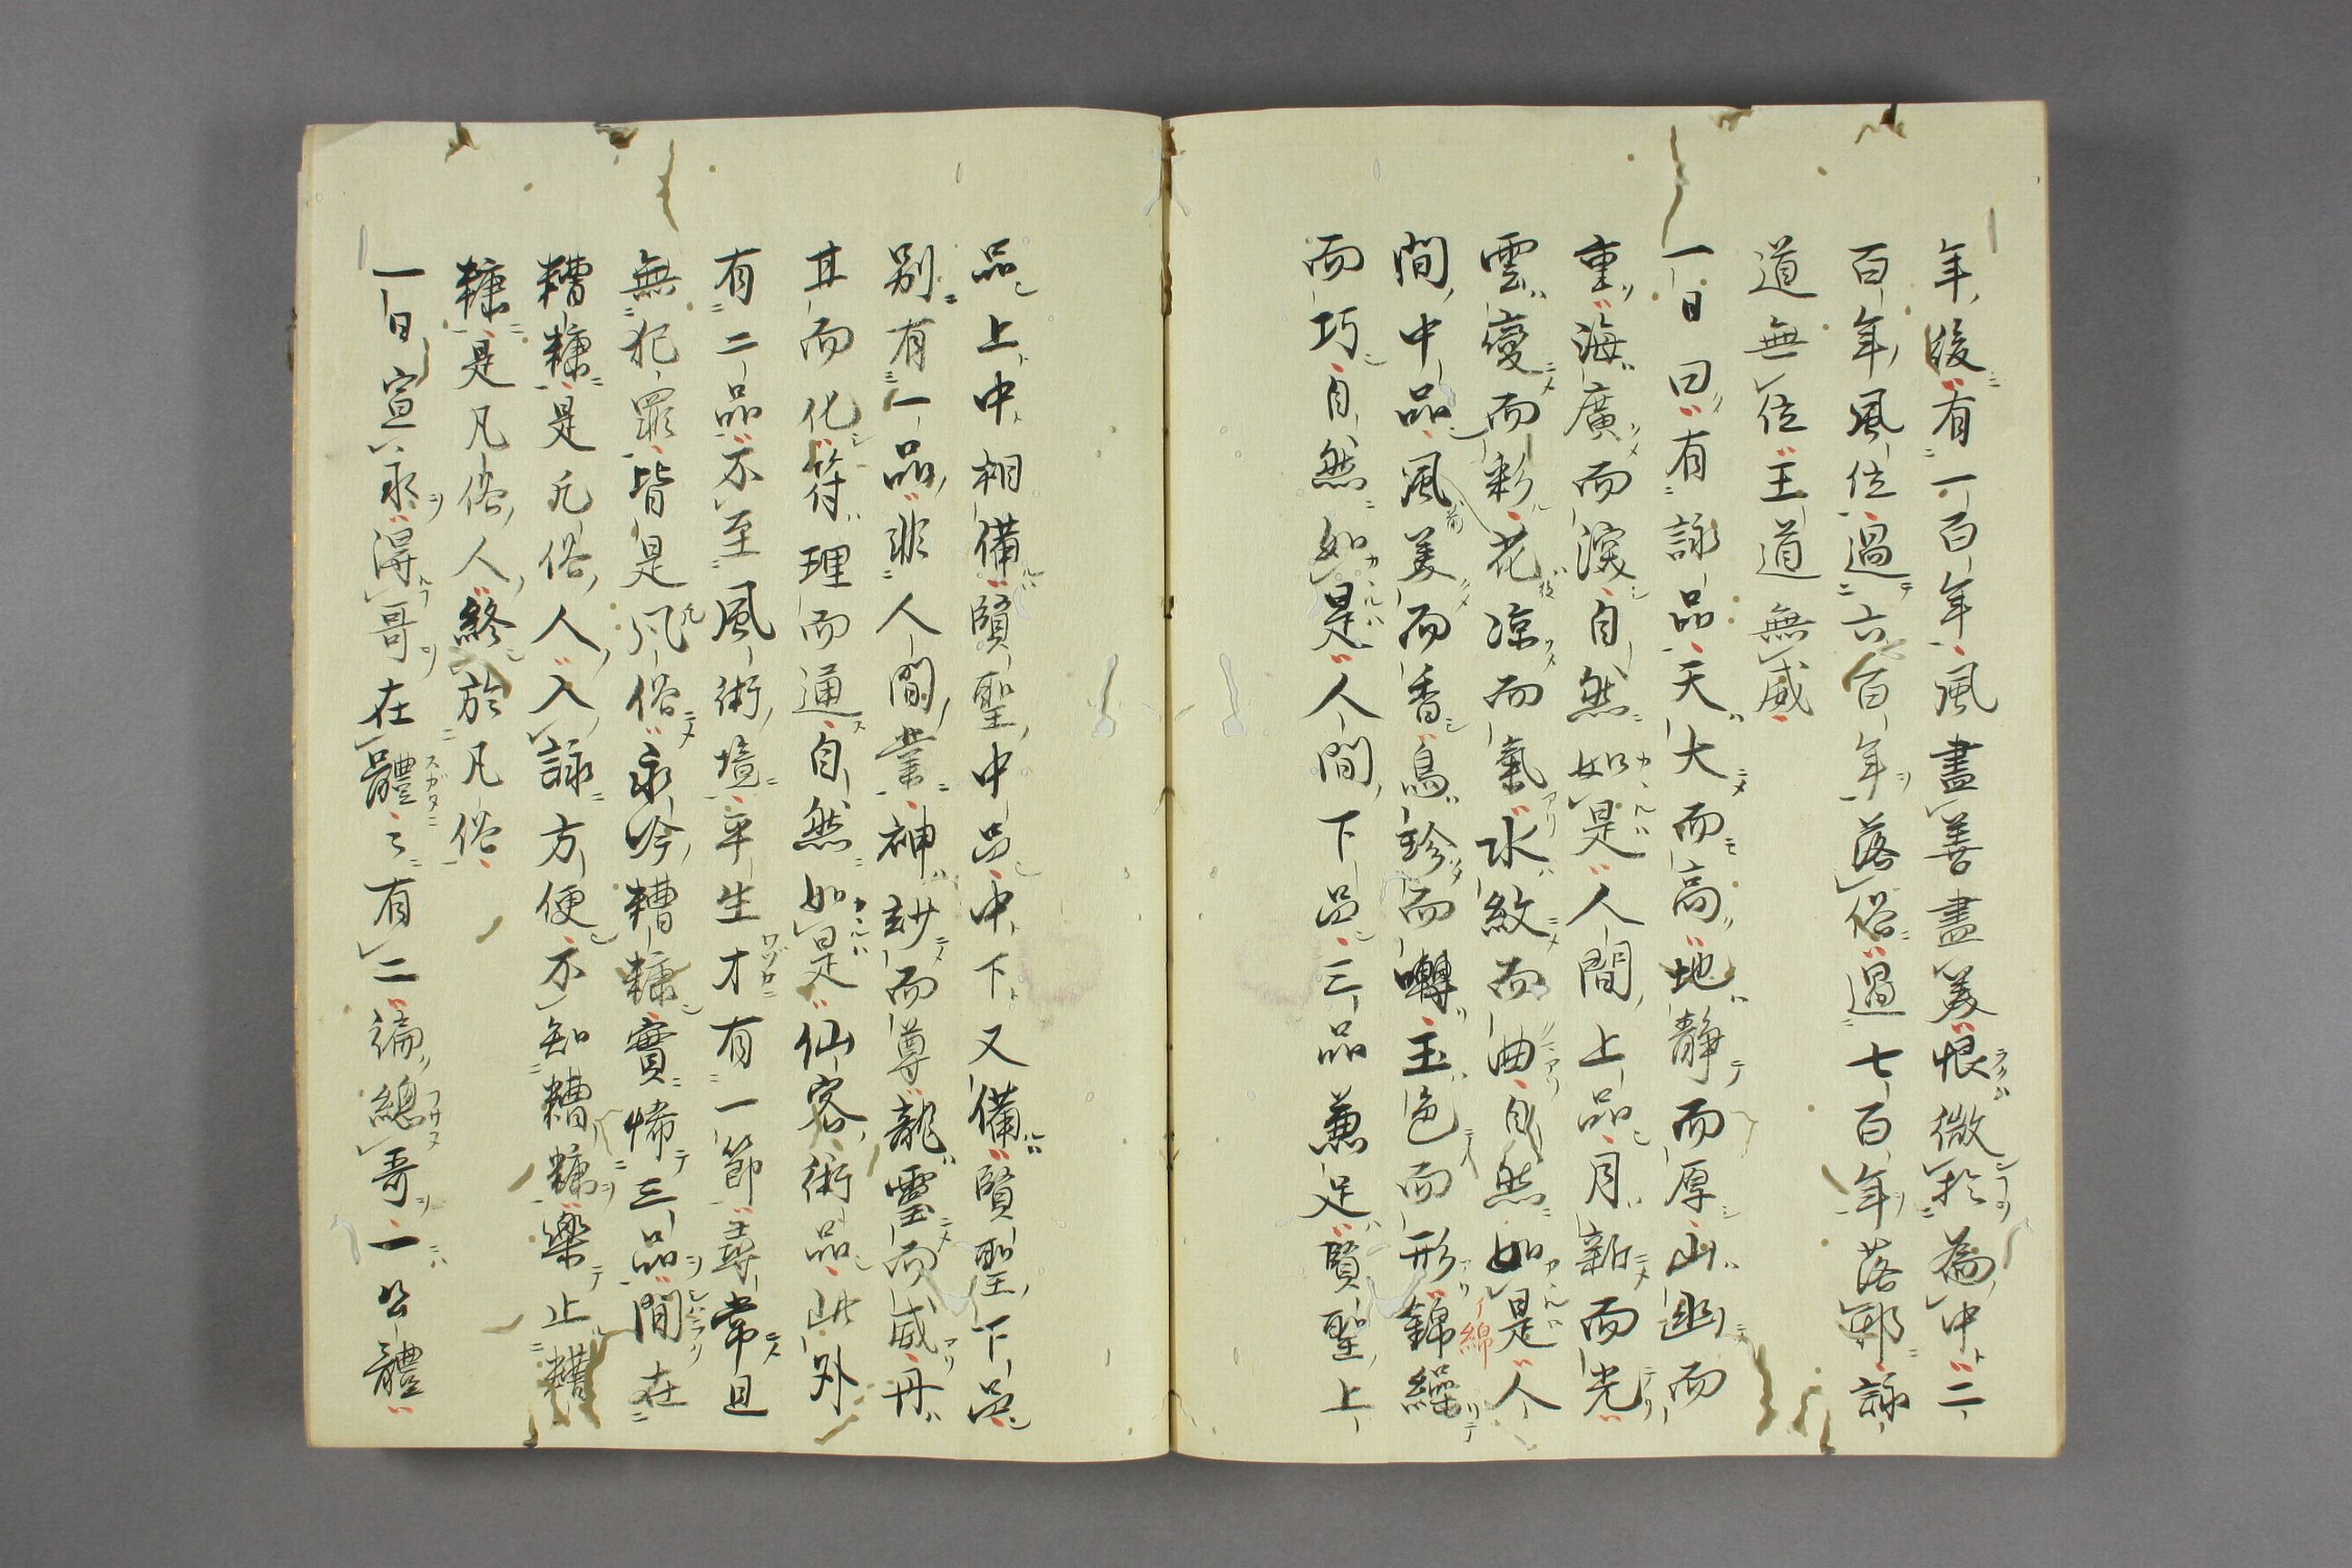 年後有一百年風盡善盡美恨微於為中二
百年風位過六百年落俗過七百年落鄙詠
道無位王道無威
一日曰有詠品天大而高地静而厚山幽而
重海廣而深自然如是人間上品月新而光
雲變而彩花凉而氣水紋而曲自然如是人
間中品風美而香鳥珍而囀玉色而形錦繰
而巧自然如是人間下品三品兼足賢聖上
品上中相備賢聖中品中下又備賢聖下品
別有一品非人間業神妙而尊龍靈而威丹
甘而化符理而通自然如是仙客術品此外
有二品不至風術境平生才有一節尋常且
無犯罪皆是凡俗永吟糟糠實悕三品間在
糟糠是凡俗人入詠方便不知糟糠樂止糟
糠是凡俗人終於凡俗
一日宣永得哥在體々有二徧總哥一必體